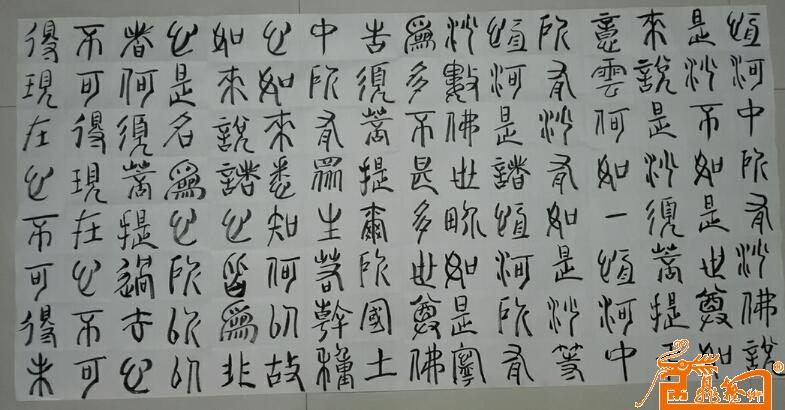 恒河中所有沙佛說
是沙不如是世尊如
來說是沙須菩提
意雲何如一恒河中
所有沙有如是沙等
恒河是諸恒河所有
沙數佛世界如是寧
為多不甚多世尊佛
告須菩提爾所國土
中所有眾生若幹種
心如來悉知何以故
如來說諸心皆為非
心是名為心所以
者何須菩提過去心
不可得現在心不可
得現在心不可得未